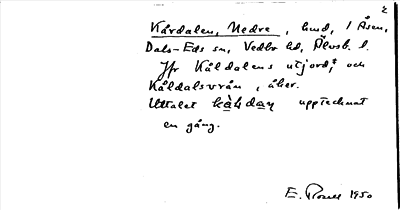 Kårdalen, Nedre, hmd, 1 Åsen,
Dals-Eds sn, Vedbo hd, Älvsb. l.
Jfr Kåldalens utjord, och
Kåldalsvrån, åker.
Uttalet kàḷdaṇ upptecknat
en gång.
E. Rosell 1950